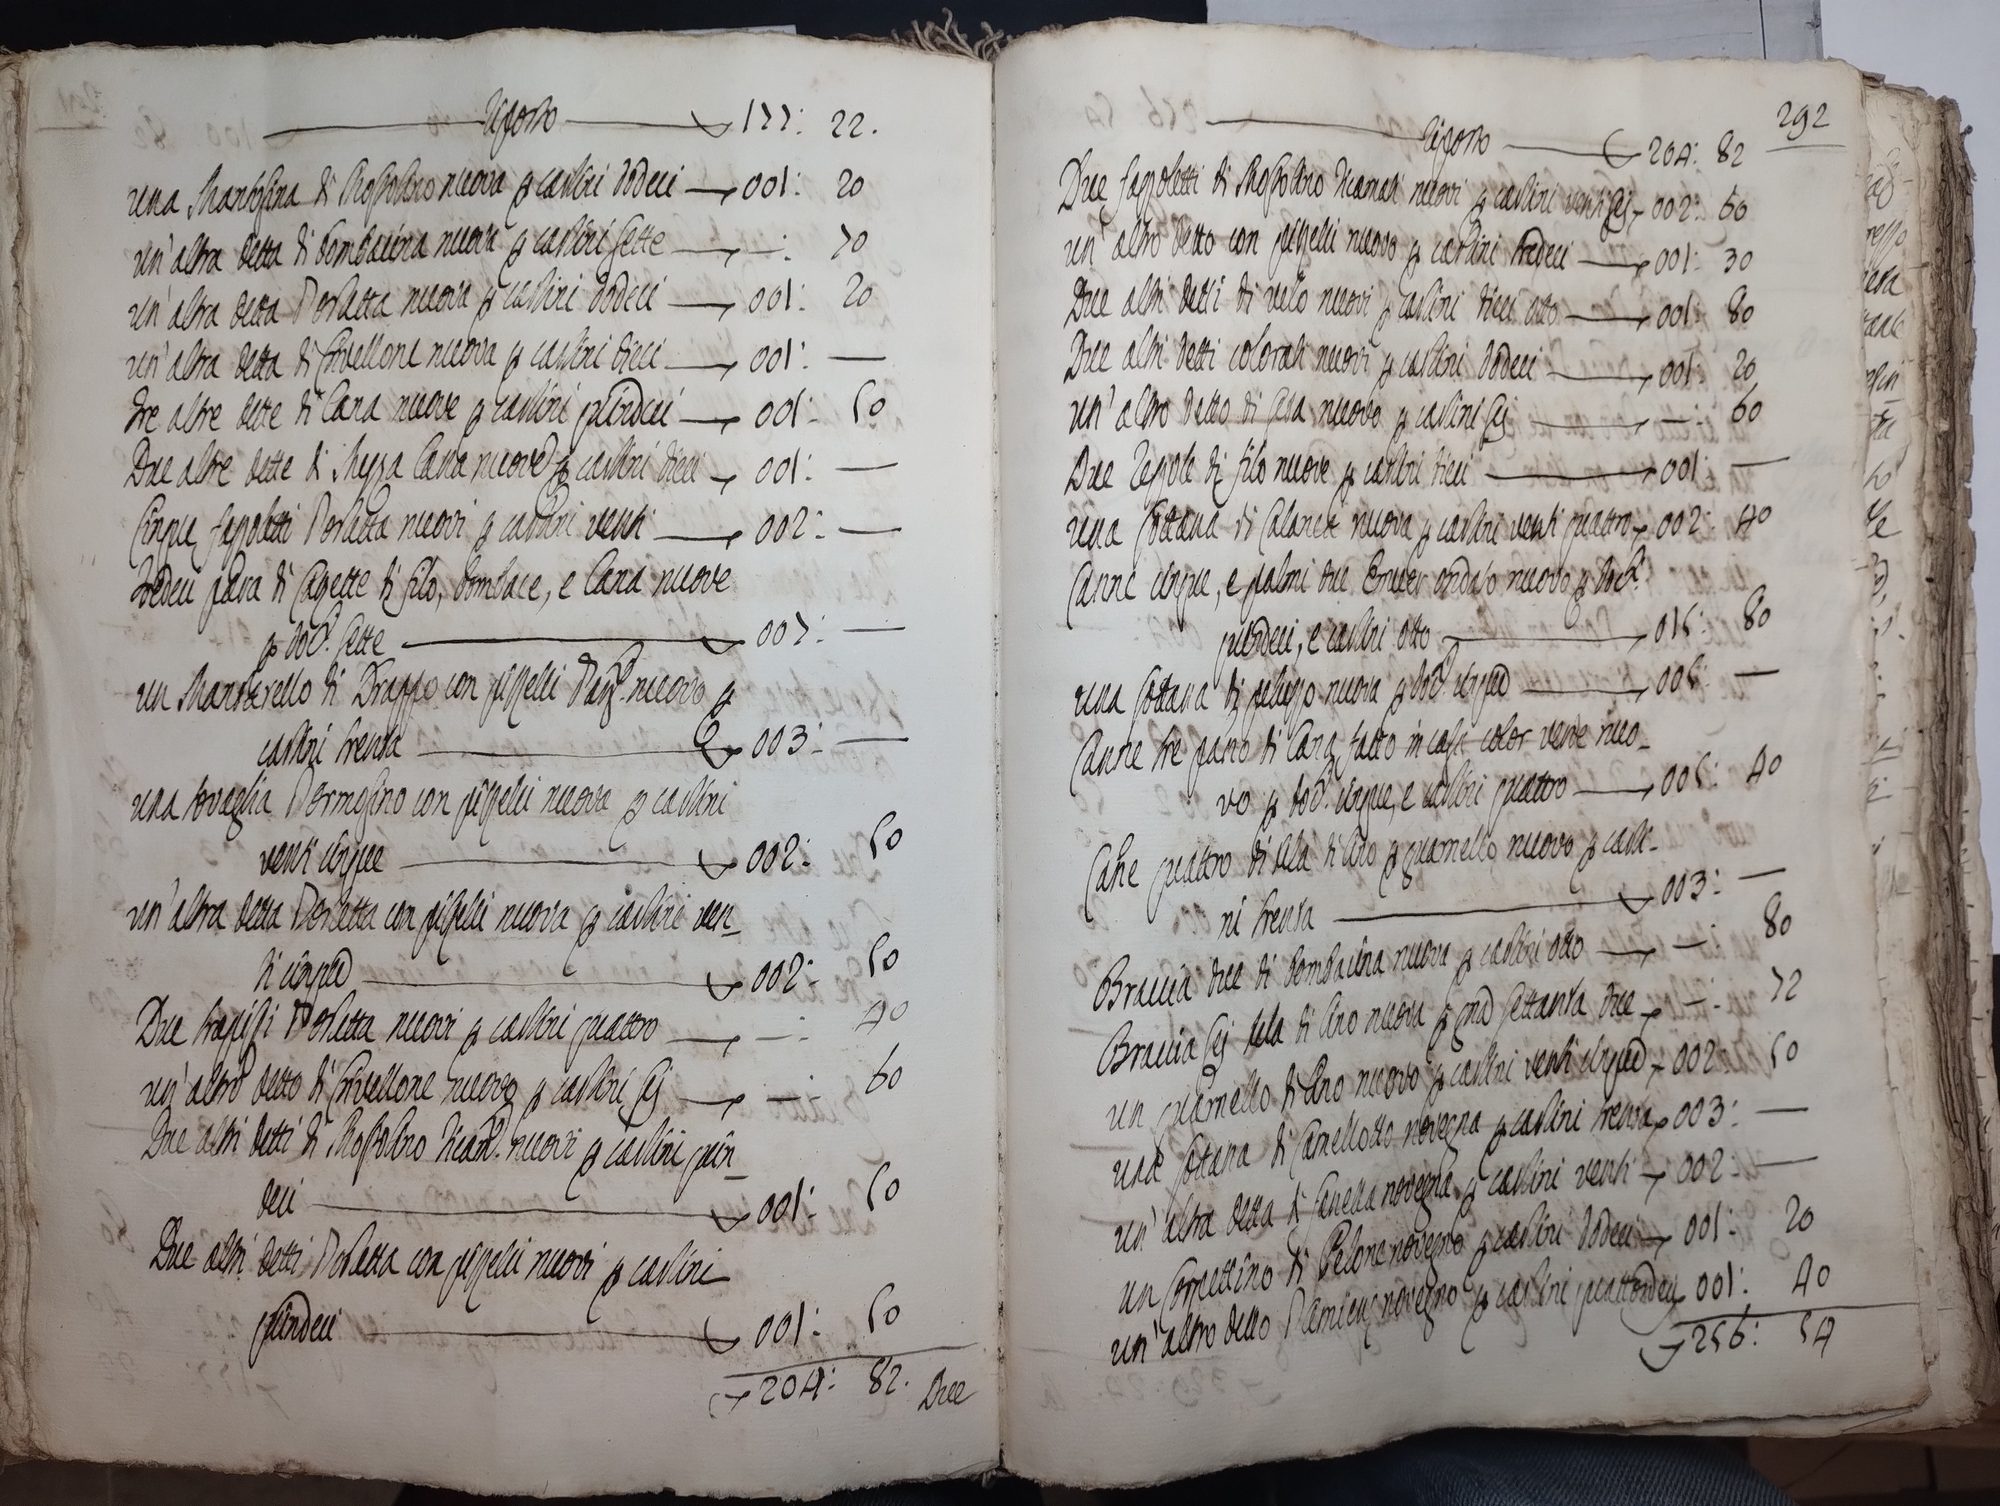 riporto 177: 22.
una Mantesina di Mossolino nuova p carlini dodeci 001: 20
un'altra detta di bombacina nuova p carlini sette —: 70
un'altra detta d'orletta nuova p carlini dodeci 001: 20
un'altra detta di Crivellone nuova p carlini dieci 001: —
tre altre dette di lana nuove p carlini quindeci 001: 50
Due altre dette di Mezza lana nuove p carlini dieci 001: —
Cinque fazzoletti d'orletta nuovi p carlini venti 002: —
tredeci para di Calzette di filo, bombace, e lana nuove
p doc.ti sette 007: —
un Mantarello di Drappo con pizzilli nuovo p
carlini trenta 003: —
una tovaglia d'ormesino con pizzilli nuova p carlini
venti cinque 002: 50
un'altra detta d'orletta con pizzilli nuova p carlini ven-
ti cinque 002: 50
Due d'orletta nuovi p carlini quattro —: 40
un'altro detto di Crivellone nuovo p carlini sej —: 60
Due altri detti di Mossolino ricam.ti nuovi p carlini quin-
deci 001: 50
Due altri detti d'orletta con pizzilli nuovi p carlini
quindeci 001: 50
204: 82.
Due
292
riporto 204: 82
Due fazzoletti di Mossolino ricamati nuovi p carlini ventisej 002: 60
un'altro detto con pizzilli nuovo p carlini tredeci 001: 30
Due altri detti di velo nuovi p carlini dieci otto 001: 80
Due altri detti colorati nuovi p carlini dodeci 001: 20
un'altro detto di seta nuovo p carlini sej —: 60
Due di filo nuove p carlini dieci 001: —
una sottana di Calancà nuova p carlini venti quattro 002: 40
Canne cinque, e palmi due ondato nuovo p doc.ti
quindeci, e carlini otto 015: 80
una sottana di nuova p doc.ti cinque 005: —
Canne tre panno di lana fatto in casa color verde nuo-
vo p doc.ti cinque, e carlini quattro 005: 40
Cañe quattro di tela di lino p guarnello nuovo p carli-
ni trenta 003: —
Braccia due di bombacina nuova p carlini otto —: 80
Braccia sej tela di lino nuova p gña settanta due —: 72
un guarnello di lino nuovo p carlini venti cinque 002: 50
una sottana di Camellotto novegna p carlini trenta 003: —
un'altra detta di novegna p carlini venti 002: —
un Corpettino di Pelone novegno p carlini dodeci 001: 20
un'altro detto novegno p carlini quattordeci 001: 40
256: 54